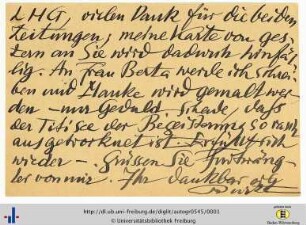 LHG, vielen Dank für die beiden
Zeitungen, meine Karte von ges-
tern an Sie wird dadurch hinfäl-
lig. An Frau Berta werde ich schrei-
ben und Hanke wird gemalt wer
den – nur Geduld schade, daß
der Titisee der Begeisterung so rasch
ausgetrocknet ist. sich
wieder – Grüssen Sie
ler von mir. Ihr dankbar erg
http://dl.ub.uni-freiburg.de/diglit/autogr0545/0001
© Universitätsbibliothek Freiburg